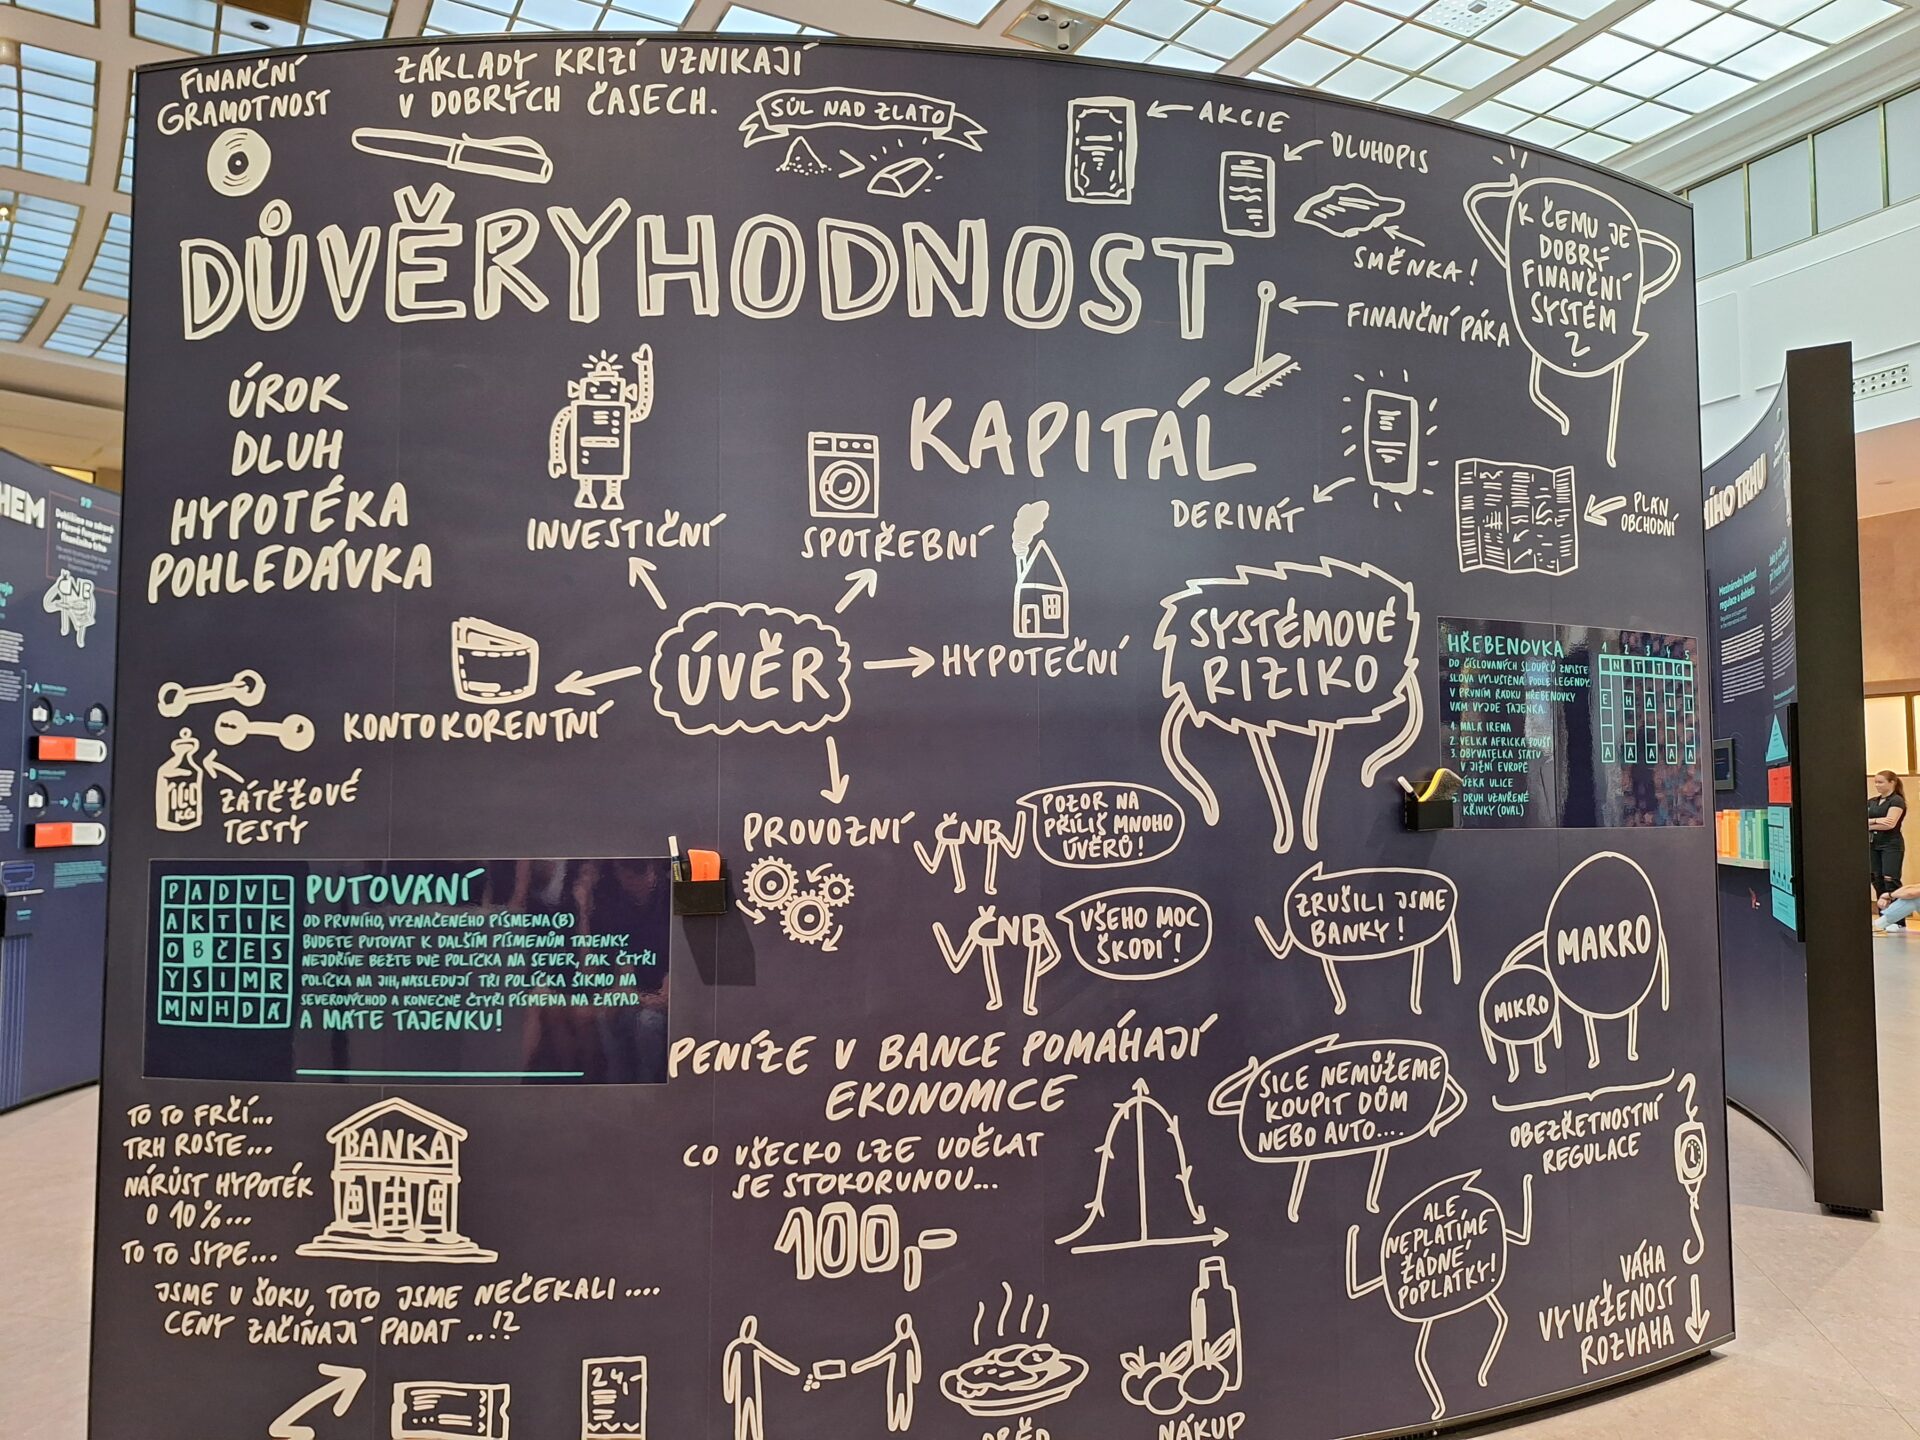 FINANČNÍ
GRAMOTNOST
ZÁKLADY KRIZÍ VZNIKAJÍ
V DOBRÝCH ČASECH.
SŮL NAD ZLATO
AKCIE
DLUHOPIS
SMĚNKA!
K ČEMU JE
DOBRÝ
FINANČNÍ
SYSTÉM
?
DŮVĚRYHODNOST
FINANČNÍ PÁKA
ÚROK
DLUH
HYPOTÉKA
POHLEDÁVKA
INVESTIČNÍ
SPOTŘEBNÍ
KAPITÁL
DERIVÁT
PLÁN
OBCHODNÍ
ÚVĚR
HYPOTEČNÍ
KONTOKORENTNÍ
PROVOZNÍ
SYSTÉMOVÉ
RIZIKO
ZÁTĚŽOVÉ
TESTY
HŘEBENOVKA
DO ČÍSLOVANÝCH SLOUPCŮ ZAPIŠTE
SLOVA VYLUŠTĚNÁ PODLE LEGENDY.
V PRVNÍM ŘÁDKU HŘEBENOVKY
VÁM VYJDE TAJENKA.
1. MALÁ IRENA
2. VELKÁ AFRICKÁ POUŠŤ
3. OBYVATELKA STÁTU
V JIŽNÍ EVROPĚ
ÚZKÁ ULICE
DRUH UZAVŘENÉ
KŘIVKY (OVÁL)
1 2 3 4 5
ČNB
POZOR NA
PŘÍLIŠ MNOHO
ÚVĚRŮ!
ČNB
VŠEHO MOC
ŠKODÍ!
ZRUŠILI JSME
BANKY!
MAKRO
MIKRO
OBEZŘETNOSTNÍ
REGULACE
P A D V L
A K T I K
O B Č E S
Y S I M R
M N H D Á
PUTOVÁNÍ
OD PRVNÍHO, VYZNAČENÉHO PÍSMENA (B)
BUDETE PUTOVAT K DALŠÍM PÍSMENŮM TAJENKY.
NEJDŘÍVE BĚŽTE DVĚ POLÍČKA NA SEVER, PAK ČTYŘI
POLÍČKA NA JIH, NÁSLEDUJÍ TŘI POLÍČKA ŠIKMO NA
SEVEROVÝCHOD A KONEČNĚ ČTYŘI PÍSMENA NA ZÁPAD.
A MÁTE TAJENKU!
PENÍZE V BANCE POMÁHAJÍ
EKONOMICE
CO VŠECKO LZE UDĚLAT
SE STOKORUNOU...
100,-
SICE NEMŮŽEME
KOUPIT DŮM
NEBO AUTO....
ALE
NEPLATÍME
ŽÁDNÉ
POPLATKY!
VÁHA
VYVÁŽENOST
ROZVAHA
TO TO FRČÍ...
TRH ROSTE...
NÁRŮST HYPOTÉK
O 10%...
TO TO SYPE...
BANKA
JSME V ŠOKU, TOTO JSME NEČEKALI ....
CENY ZAČÍNAJÍ PADAT ..!?
24,-
OBĚD
NÁKUP
ČNB
Dohlížíme na zdravé
a férové fungování
finančního trhu
Mezinárodní kontext
regulace a dohledu